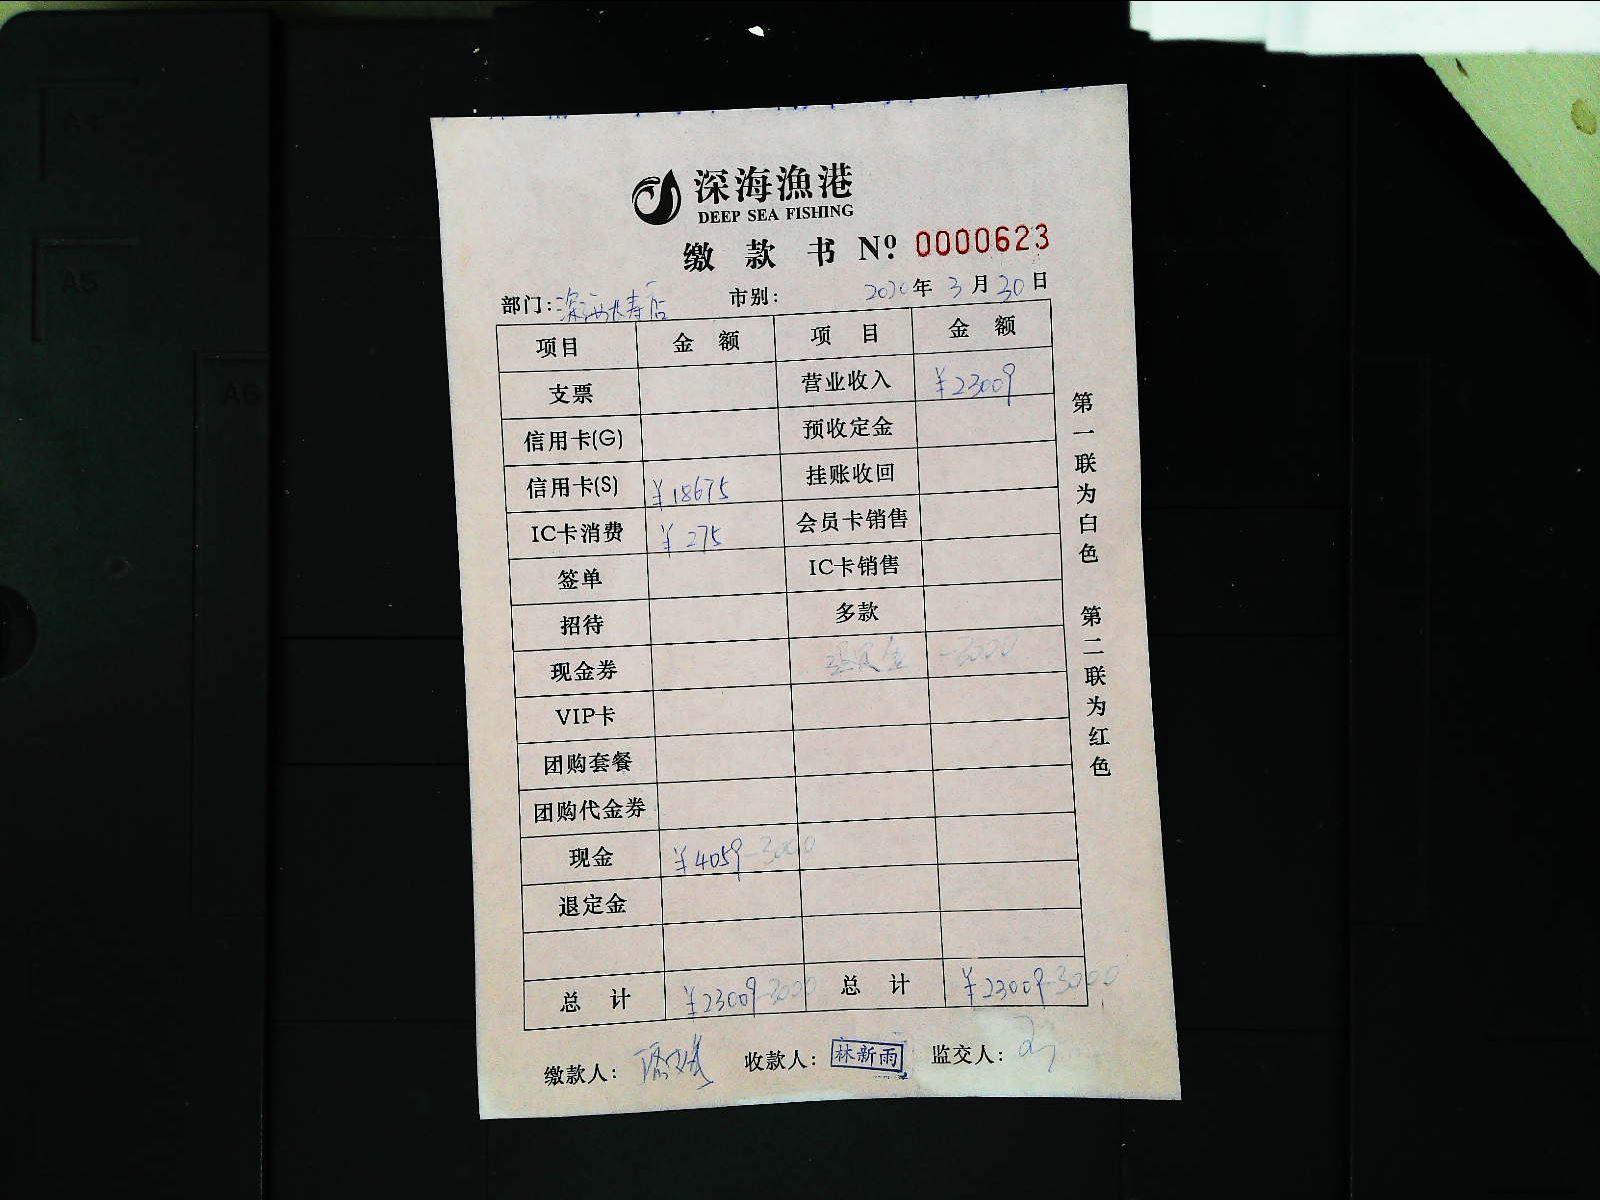 深海漁港
DEEP SEA FISHING
缴款书 Nº 0000623
部门: 深海长寿店 市别: 2020年3月30日
项目 金额 项目 金额
支票 营业收入 ¥23009
信用卡(G) 预收定金
信用卡(S) ¥18675 挂账收回
IC卡消费 ¥275 会员卡销售
签单 IC卡销售
招待 多款
现金券 退定金 -3000
VIP卡
团购套餐
团购代金券
现金 ¥4059-3000
退定金
总计 ¥23009-3000 总计 ¥23009-3000
缴款人: 收款人: 林新雨 监交人:
第一联为白色 第二联为红色
A4
A5
A6